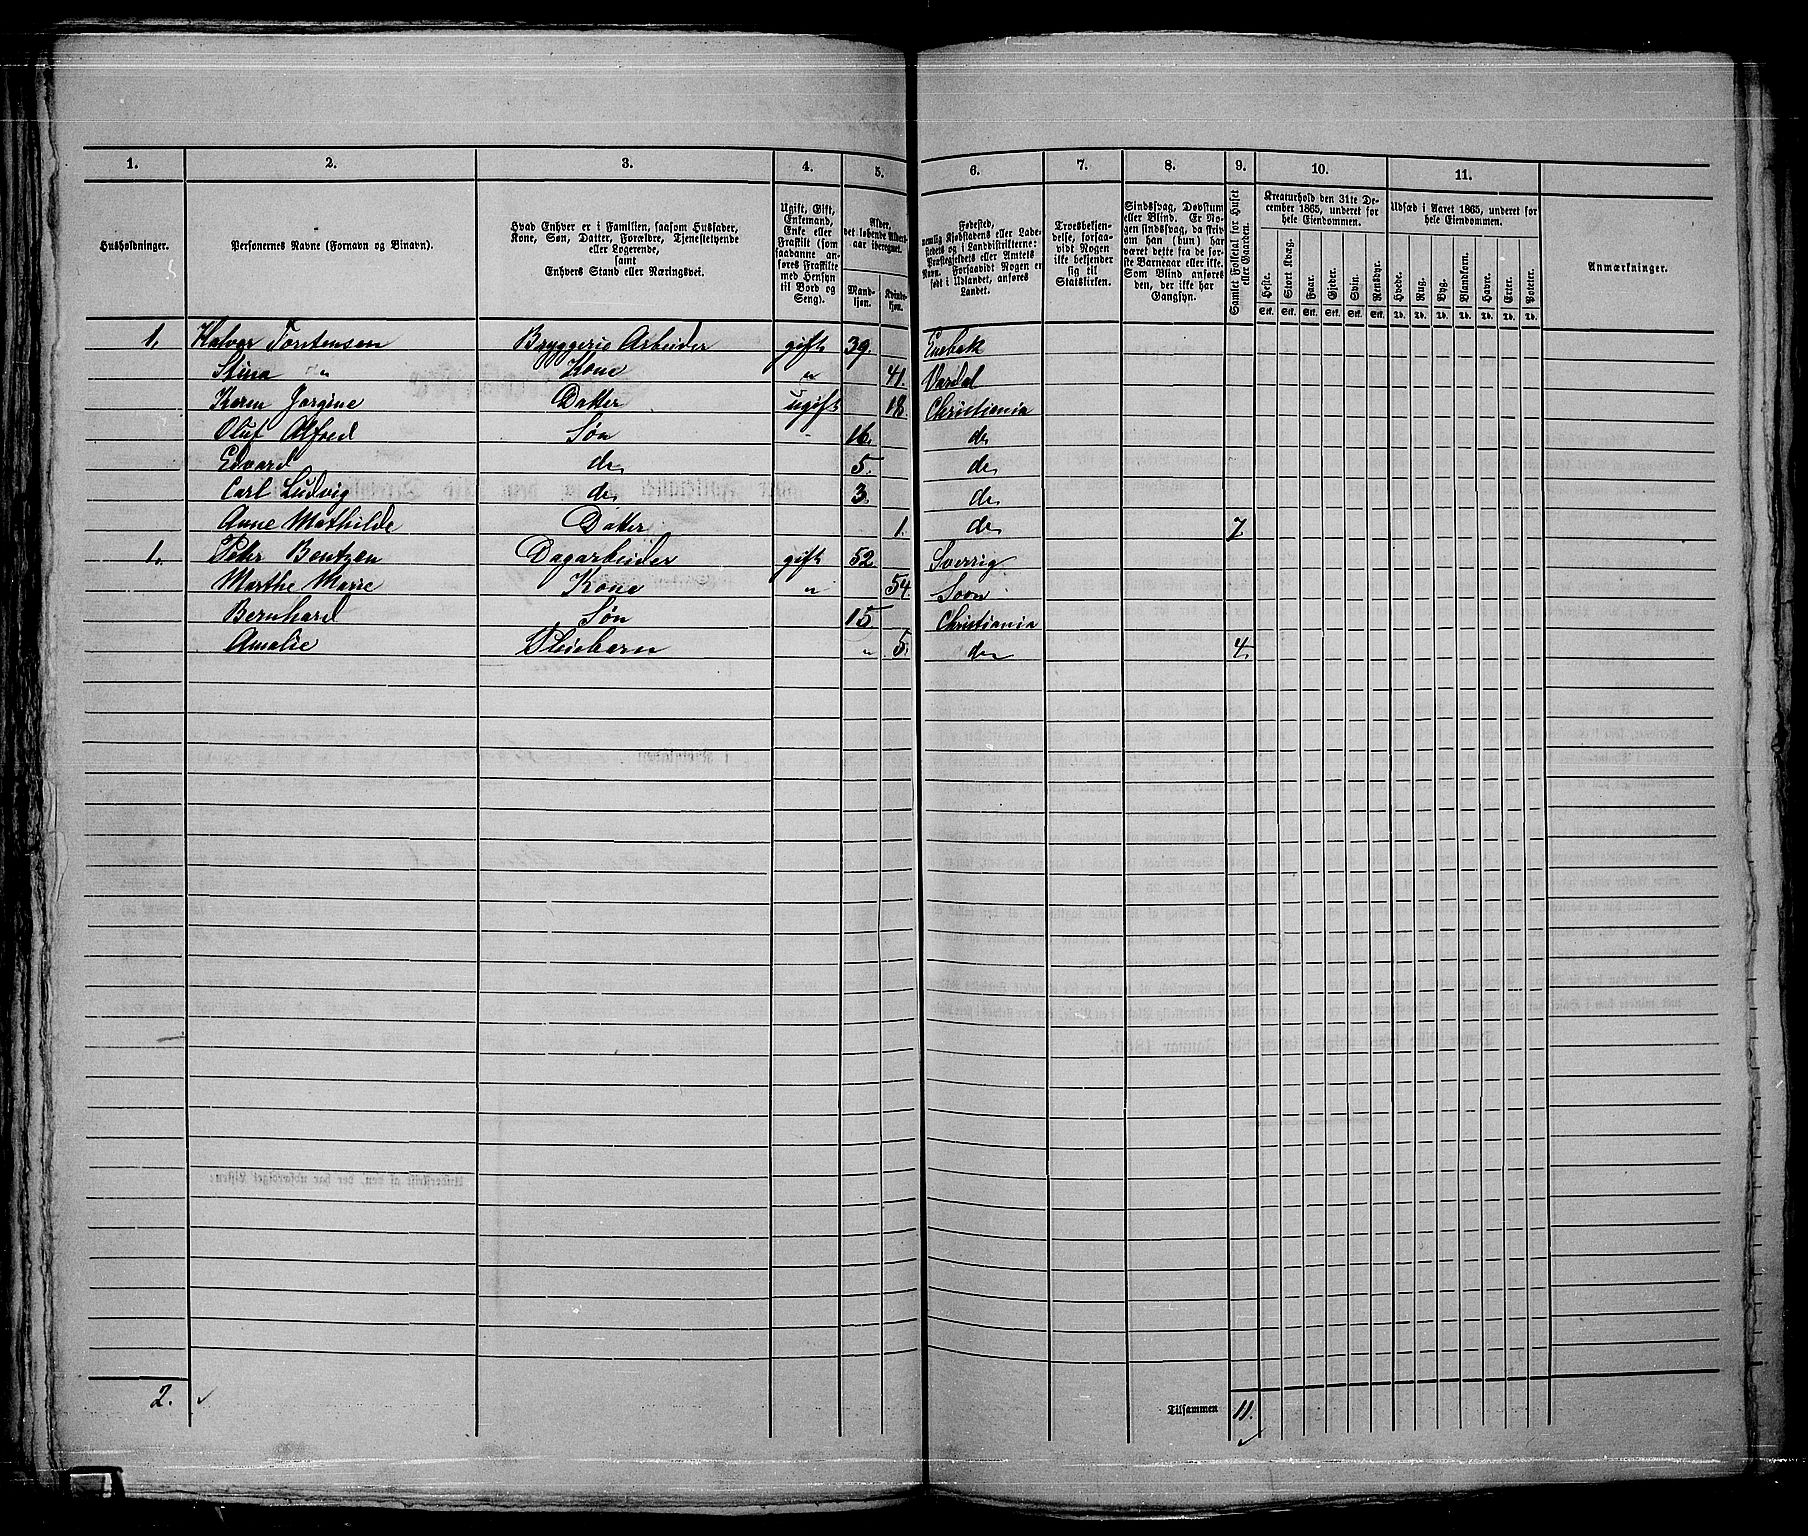 1. 2. 3. 4. 5. 6. 7. 8. 9. 10. 11.
Husholdninger.
Personernes Navne (Fornavn og Binavn).
Hvad Enhver er i Familien, saasom Husfader, Kone, Søn, Datter, Forældre, Tjenestetyende eller Logerende, samt Enhvers Stand eller Næringsvei.
Ugift, Gift, Enkemand, Enke eller Fraskilt (som saadanne anføres Fraskilte med Hensyn til Bord og Seng).
Alder, det løbende Alders-aar iberegnet.
Mand-kjøn. Kvinde-kjøn.
Fødested, nemlig Kjøbstadens eller Ladestedets og i Landdistrikterne: Præstegjeldets eller Amtets Navn. Forsaavidt Nogen er født i Udlandet, anføres Landet.
Troesbekjendelse, forsaavidt Nogen ikke bekjender sig til Statskirken.
Sindssvag, Døvstum eller Blind. Er Nogen sindssvag, da skriv om han (hun) har været dette fra de første Barneaar eller ikke. Som Blind anføres den, der ikke har Gangsyn.
Samlet Folketal for Huset eller Gaarden.
Kreaturhold den 31te December 1865, underet for hele Eiendommen.
Heste. Stort Kvæg. Faar. Gjeder. Svin. Rensdyr.
Stk. Stk. Stk. Stk. Stk. Stk.
Udsæd i Aaret 1865, underet for hele Eiendommen.
Hvede. Rug. Byg. Blandkorn. Havre. Erter. Poteter.
Td. Td. Td. Td. Td. Td. Td.
Anmærkninger.
1. Halvor Torstensen Bryggerie Arbeider gift 39. Enebak
Stina " Kone " 41. Vardal
Karen Jorgine Datter ugift 18 Christiania
Oluf Alfred Søn " 16. do
Edvard do 5. do
Carl Ludvig do 3. do
Anne Mathilde Datter 1. do 7.
1. Pehr Bentzen Dagarbeider gift 52. Sverrig
Marthe Marie Kone " 54. Soon
Bernhard Søn 15 Christiania
Amalie Pleiebarn " 5. do 4.
2.
Tilsammen 11.